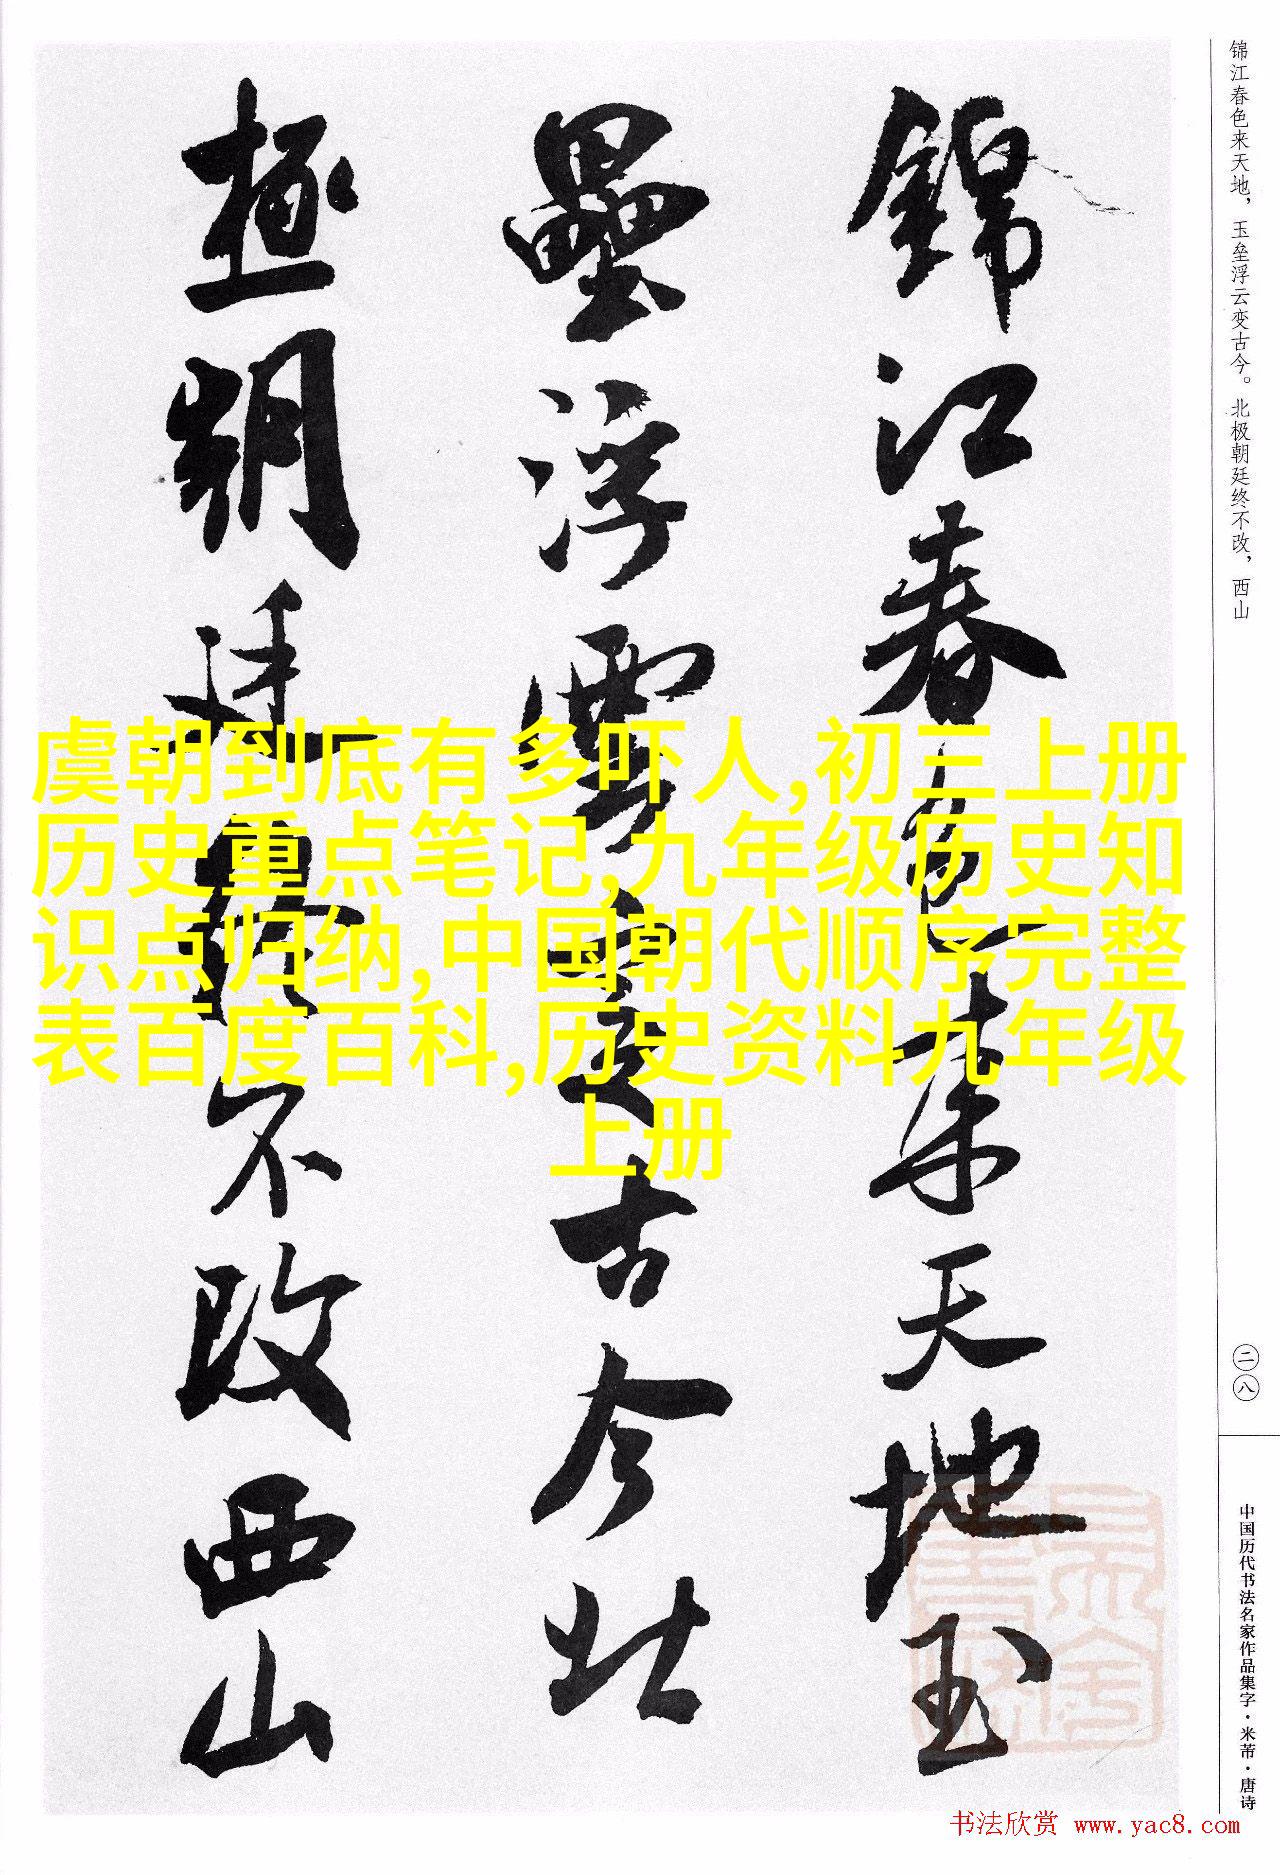 锦江春色来天地，玉垒浮云变古今。北极朝廷终不改，西山
錦江春色来天地玉
壘浮雲变古今北
極朝廷終不改西山
虞朝到底有多吓人,初三上册
历史重点笔记,九年级历史知
识点归纳,中国朝代顺序完整
表百度百科,历史资料九年级
上册
二八
中国历代书法名家作品集字·米芾·唐诗
书法欣赏 www.yac8.com